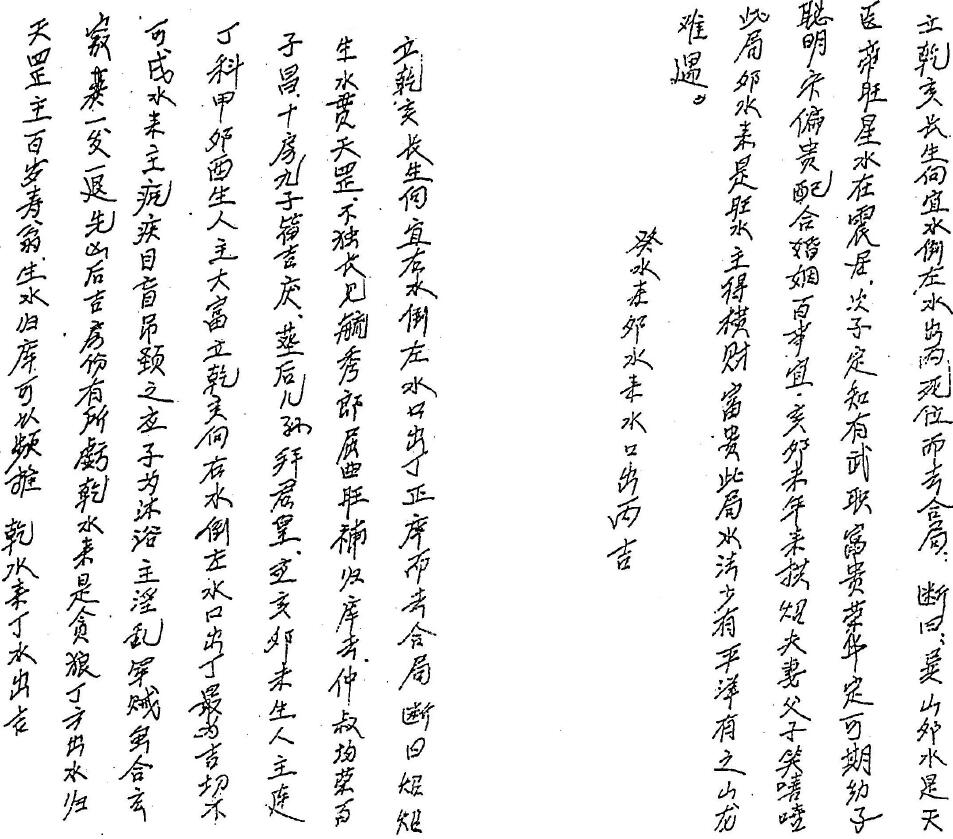 立乾亥长生向宜水倒左水出丙死位而去合局:断曰:巽山卯水是天
医帝旺星水在震居.次子定知有武职富贵荣华定可期幼子
聪明宗偏贵配合婚姻百事宜.亥卯未年来拱照夫妻父子笑嘻嘻
此局卯水来是旺水主得横财富贵此局水法少有平洋有之山龙
难遇。
癸水来卯水来水口出丙吉
立乾亥长生向宜右水倒左水口出丁正库而去合局断曰
生水贯天罡.不独长儿毓秀郎居曲旺辅归库去.仲叔均荣百
子昌.十房九子籍吉庆.燕后儿孙拜君皇.立亥卯未生人主连
丁科甲卯酉生人主大富立乾亥向右水倒左水口出丁最为吉切不
可戌水来主疯疾目盲吊颈之应子为沐浴主淫乱军贼
一发一退先凶后吉房份有所亏乾水来是贪狼丁方出水归
天罡主百岁寿翁.生水归库可以频推 乾水来丁水出吉